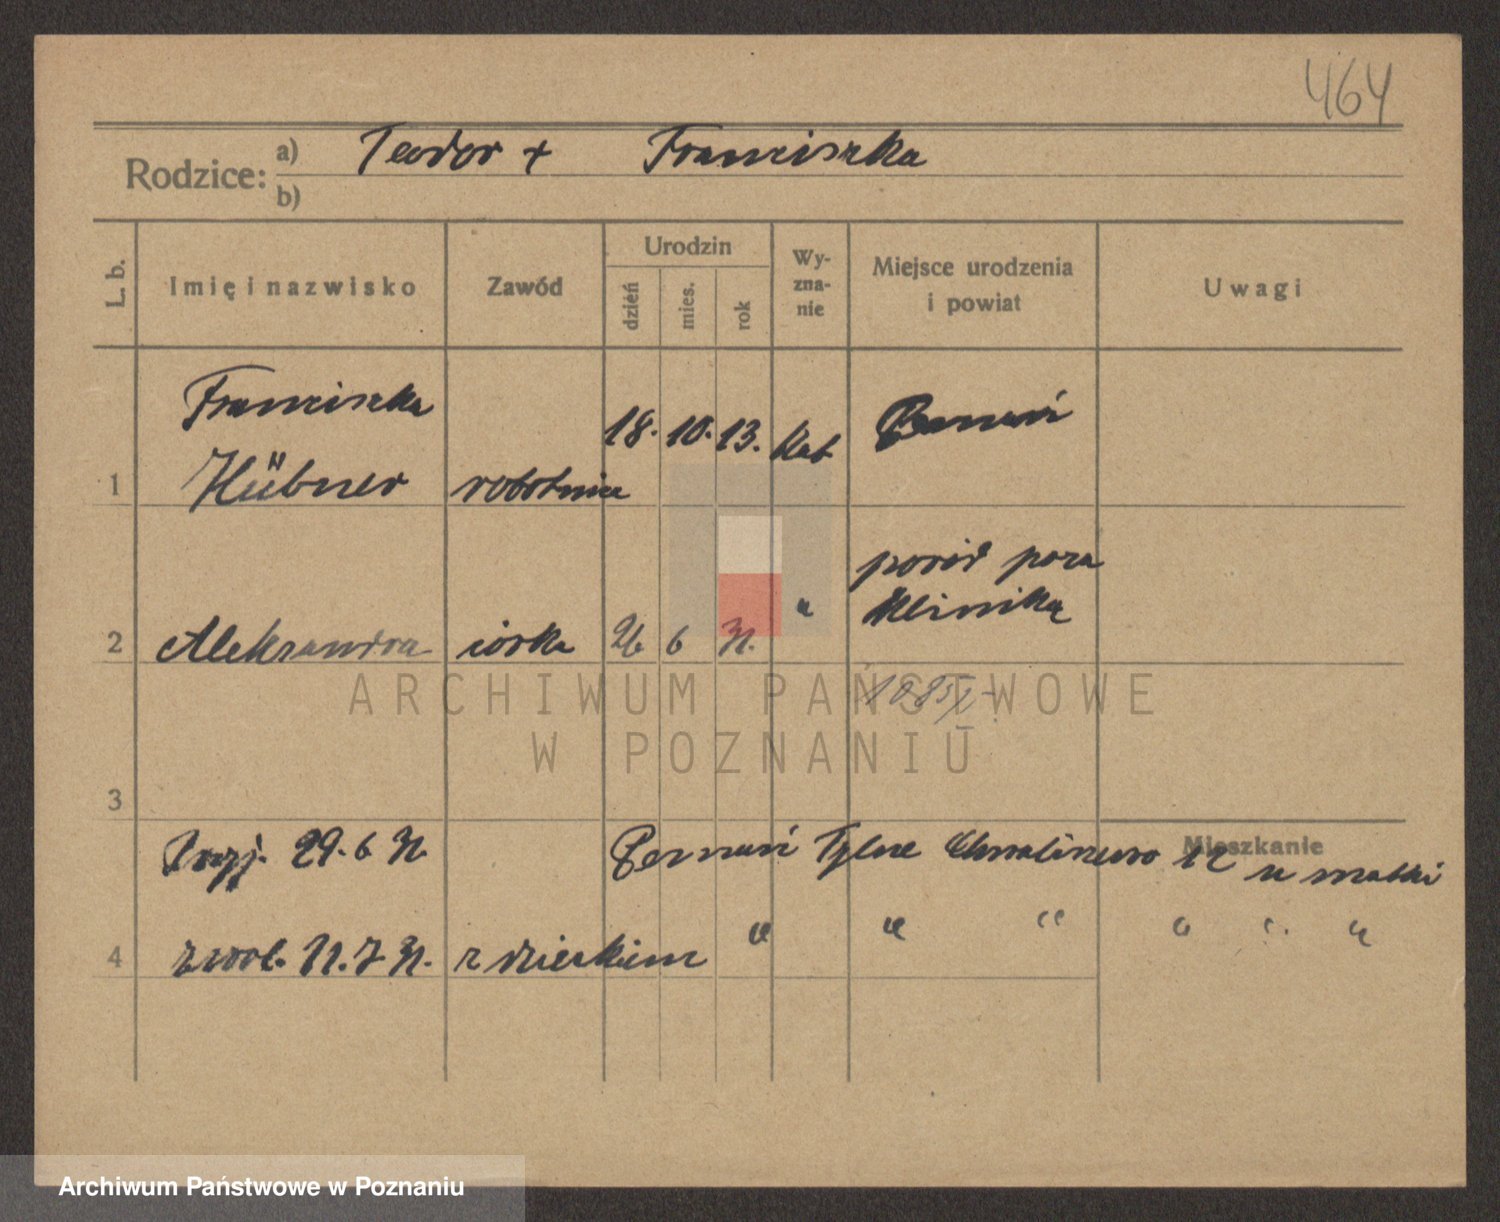 464
Rodzice: a) Teodor + Franciszka
b)
L. b. Imię i nazwisko Zawód Urodzin dzień mies. rok Wy-zna-nie Miejsce urodzenia i powiat Uwagi
Franciszka
1 Hübner robotnica 18. 10. 13. kat Poznań
poród poza
kliniką
2 Aleksandra córka 26 6 31. "
ARCHIWUM PAŃSTWOWE
W POZNANIU
3
Mieszkanie
Przyj. 29. 6 31. Poznań Tylne Chwaliszewo 12 u matki
4 zwol. 11. 7 31. z dzieckiem " " " " " "
Archiwum Państwowe w Poznaniu